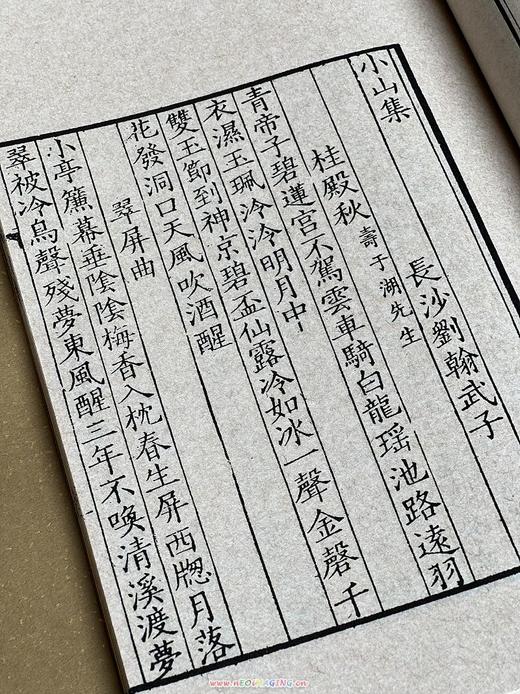 小山集
長沙劉翰武子
桂殿秋 壽于湖先生
青帝子碧蓮宮不駕雲車騎白龍瑶池路遠羽
衣濕玉珮泠泠明月中
雙玉節到神京碧盃仙露冷如冰一聲金磬千
花發洞口天風吹酒醒
翠屏曲
小亭簾幕垂陰陰梅香入枕春生屏西牕月落
翠被冷鳥聲殘夢東風醒三年不喚清溪渡夢
www.nEOiMAGING.cn